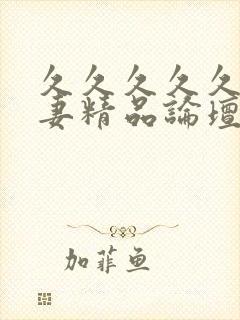 久久久久久
妻精品論壇
加菲鱼